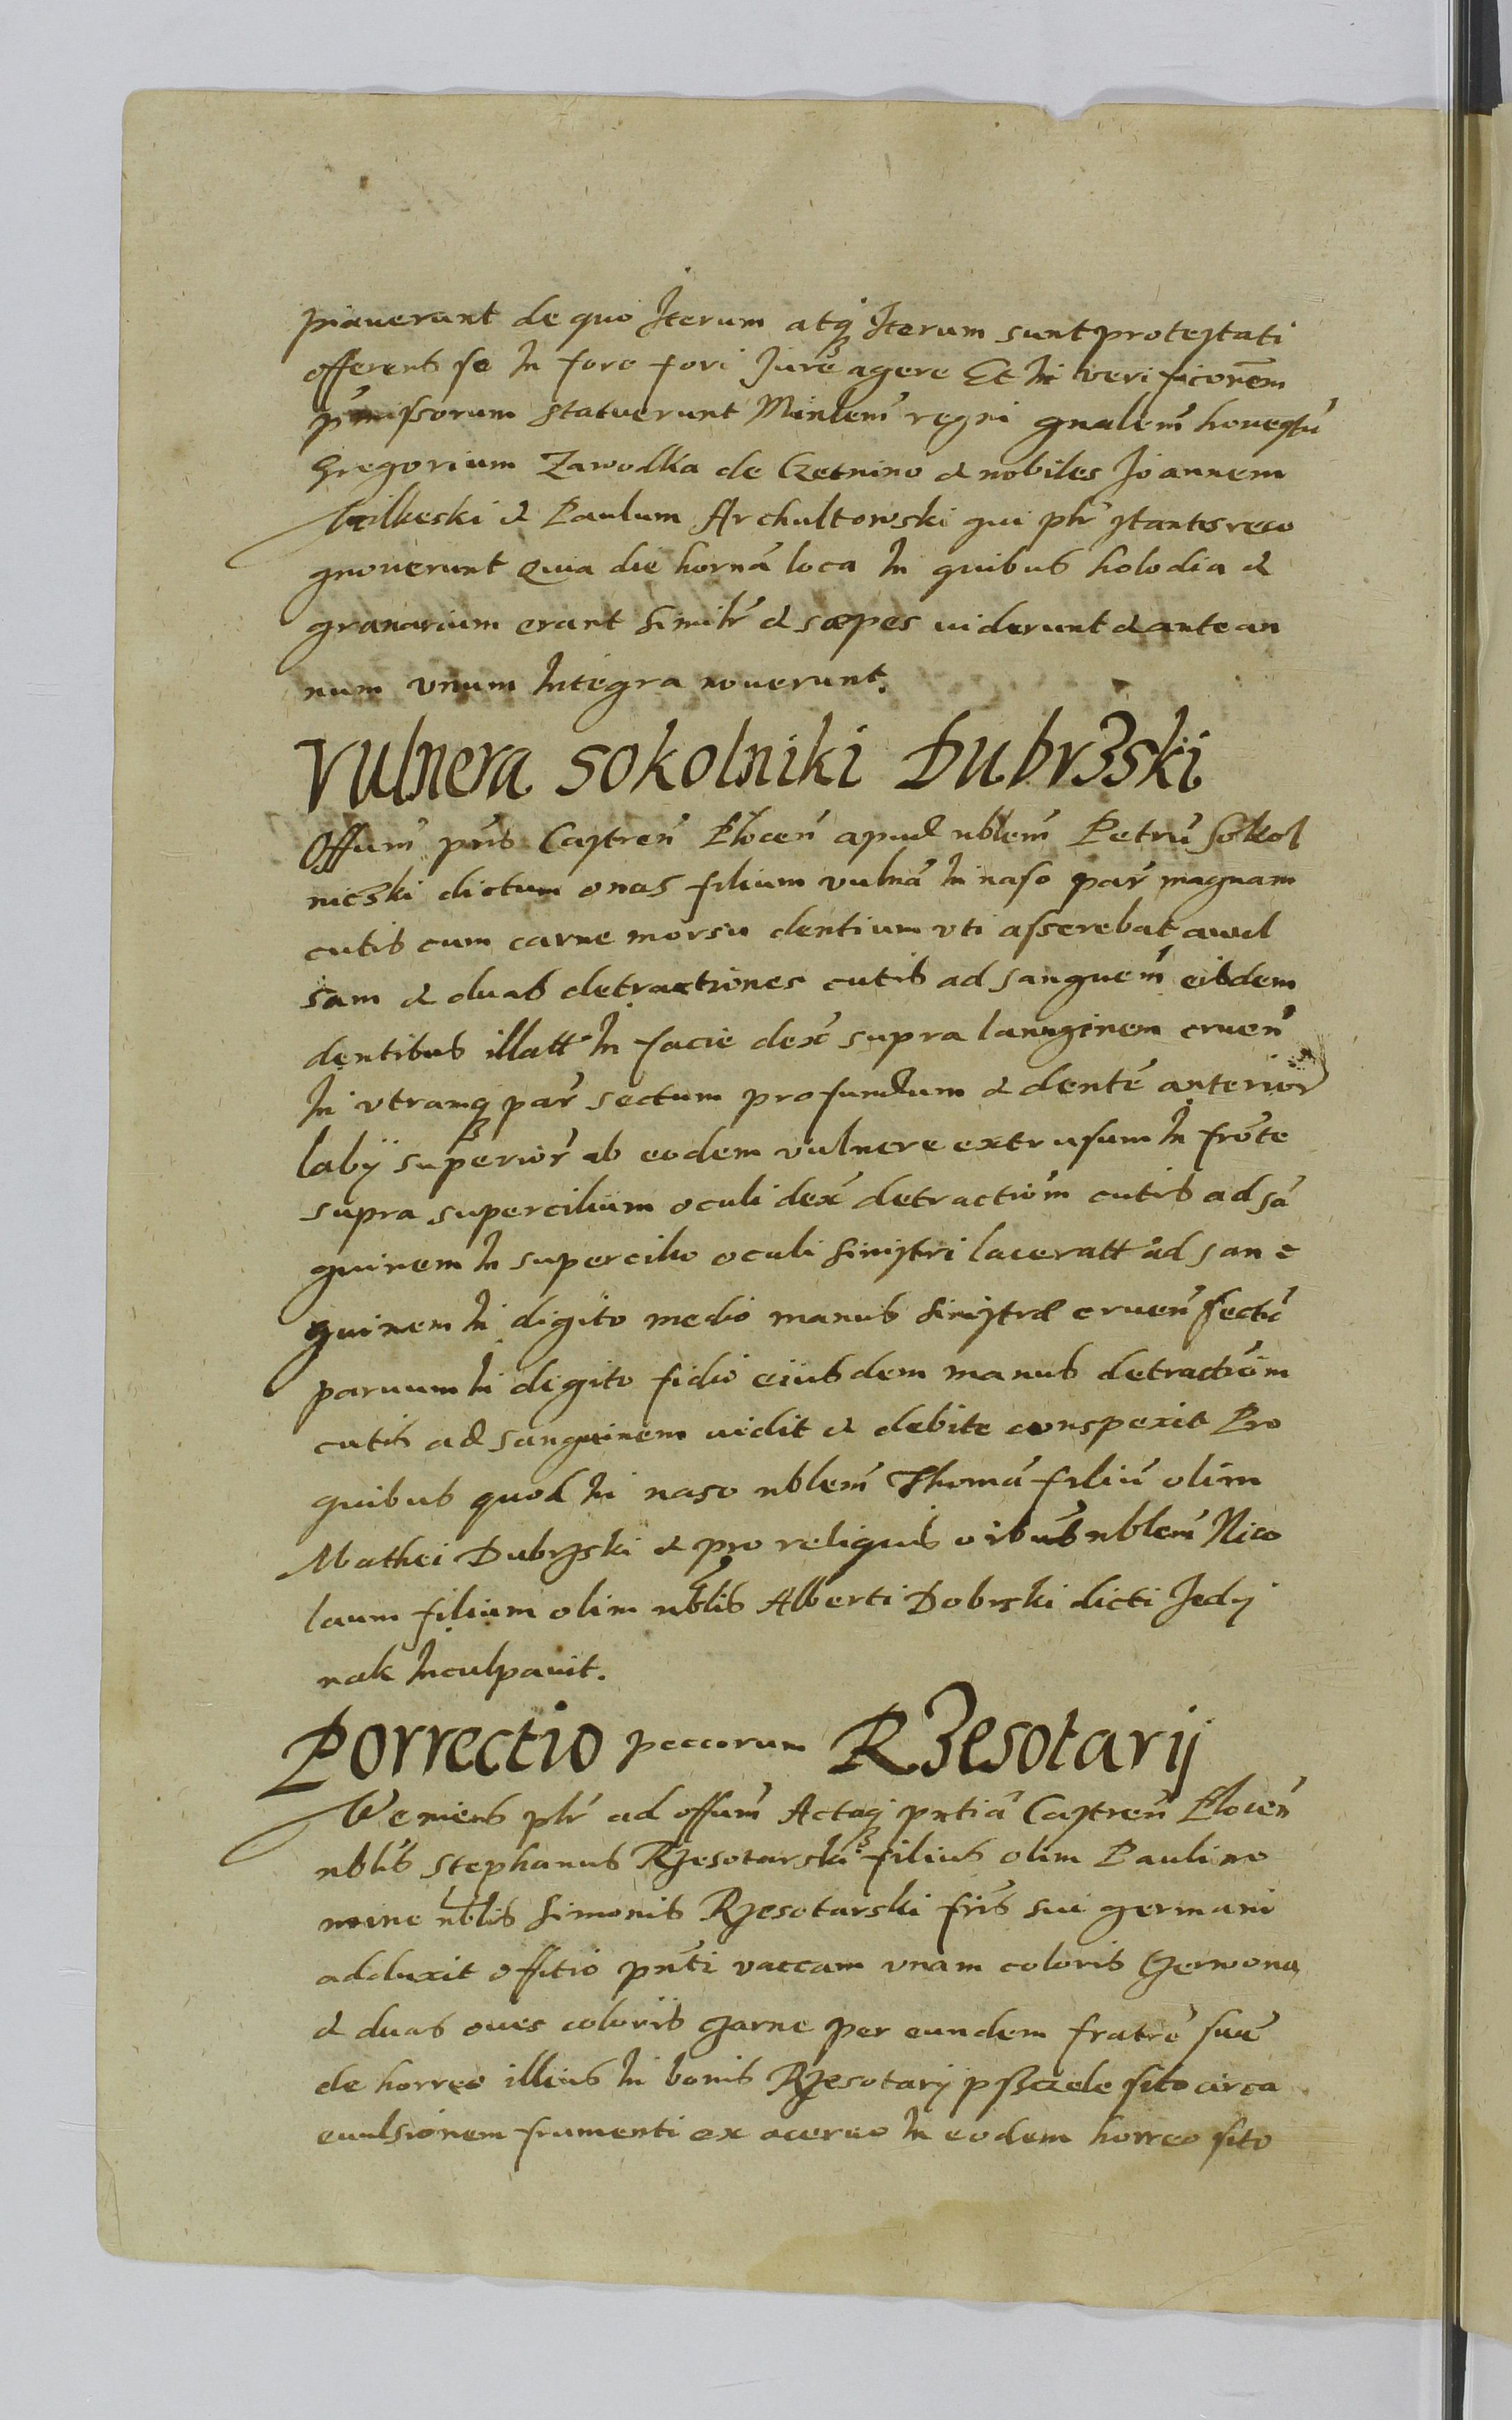 piauerunt de quo Iterum atq́ Iterum sunt protestati
offerens se In foro fori Iure agere Et In verificonem̃
p̃missorum statuerunt Minlem̃ regni gnalem̃ honestũ
Gregorium Zawodka de Czetnino & nobiles Joannem
Wilkeski & Paulum Archultowski qui plr̃ stantes reco
gnouerunt Quia die hornã loca In quibus holodia &
granarium erant similr̃ & sæpes uiderunt & ante an
num vnum Integra nouerunt.
Vulnera sokolniki Dubrzskij
Offum̃ pñs Castreñ Ploceñ apud nblem̃ Petrũ Sokol
niczki dictum onas filium vulnã In naso par̃ magnam
cutis cum carne morsu dentium vti asserebat awl
sam & duas detractiones cutis ad sanguem̃ eisdem
dentibus illatt In facie dex̃ supra lanuginem crueñ
In vtramq́ par̃ sectum profundum & dentẽ anterior̃
labij superior̃ ab eodem vulnere extrusum In frõte
supra supercilium oculi dex̃ detractiom̃ cutis ad sã
guinem In supercilio oculi sinistri laceratt ad san
guinem In digito medio manus sinistræ crueñ sectũ
paruum In digito fidio eiusdem manus detractiom̃
cutis ad sanguinem uidit & debite conspexit Pro
quibus quod In naso nblem̃ Thomã filiũ olim
Mathei Dubrzski & pro reliquis oibus nblem̃ Nico
laum filium olim nblis Alberti Dobrski dicti Jedy
nak Inculpauit.
Porrectio peccorum Rzesotarij
Weniens plr̃ ad offum̃ Actaq́ pntiã Castreñ Ploceñ
nblis Stephanus Rzesotarski filius olim Pauli no
mine nblis Simonis Rzesotarski fris sui germani
adduxit offitio pñti vaccam vnam coloris Czerwona
& duas oues coloris czarne per eundem fratrẽ suũ
de horreo illius In bonis Rzesotarij pszczele sito circa
euulsionem frumenti ex aceruo In eodem horreo sito